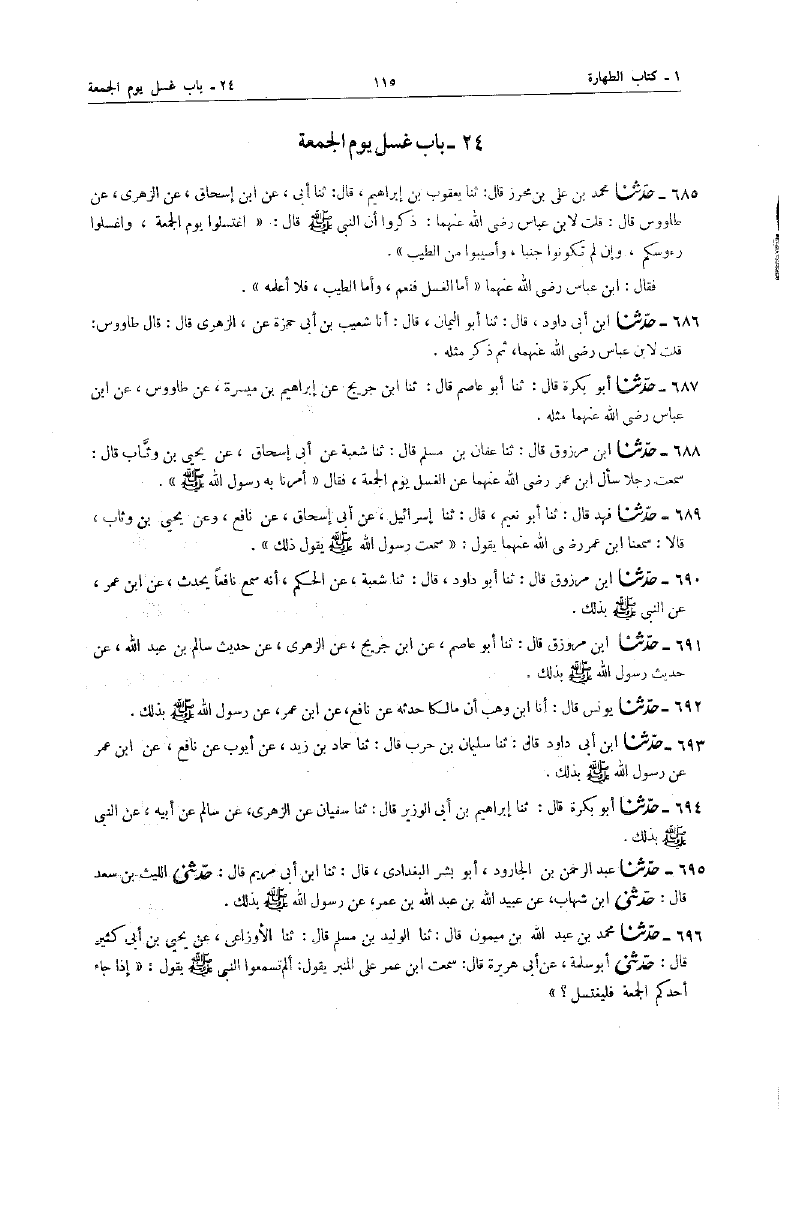 ١ ـ كتاب الطهارة ١١٥ ٢٤ ـ باب غسل يوم الجمعة
٢٤ ـ باب غسل يوم الجمعة
٦٨٥ ـ حدّثنا محمد بن على بن محرز قال: ثنا يعقوب بن إبراهيم ، قال: ثنا أبى ، عن ابن إسحاق ، عن الزهرى ، عن
طاووس قال : قلت لابن عباس رضى الله عنهما : ذكروا أن النبى ﷺ قال : « اغتسلوا يوم الجمعة ، واغسلوا
رءوسكم ، وإن لم تكونوا جنبا ، وأصيبوا من الطيب » .
فقال : ابن عباس رضى الله عنهما « أما الغسل فنعم ، وأما الطيب ، فلا أعلمه » .
٦٨٦ ـ حدّثنا ابن أبى داود ، قال : ثنا أبو اليمان ، قال : أنا شعيب بن أبى حمزة عن ، الزهرى قال : قال طاووس:
قلت لابن عباس رضى الله عنهما، ثم ذكر مثله .
٦٨٧ ـ حدّثنا أبو بكرة قال : ثنا أبو عاصم قال : ثنا ابن جريج عن إبراهيم بن ميسرة ، عن طاووس ، عن ابن
عباس رضى الله عنهما مثله .
٦٨٨ ـ حدّثنا ابن مرزوق قال : ثنا عفان بن مسلم قال : ثنا شعبة عن أبى إسحاق ، عن يحيى بن وثَّاب قال :
سمعت رجلا سأل ابن عمر رضى الله عنهما عن الغسل يوم الجمعة ، فقال « أمرنا به رسول الله ﷺ » .
٦٨٩ ـ حدّثنا فهد قال : ثنا أبو نعيم ، قال : ثنا إسرائيل ، عن أبى إسحاق ، عن نافع ، وعن يحيى بن وثاب ،
قالا : سمعنا ابن عمر رضى الله عنهما يقول : « سمعت رسول الله ﷺ يقول ذلك » .
٦٩٠ ـ حدّثنا ابن مرزوق قال : ثنا أبو داود ، قال : ثنا شعبة ، عن الحكم ، أنه سمع نافعاً يحدث ، عن ابن عمر ،
عن النبى ﷺ بذلك .
٦٩١ ـ حدّثنا ابن مروزق قال : ثنا أبو عاصم ، عن ابن جريج ، عن الزهرى ، عن حديث سالم بن عبد الله ، عن
حديث رسول الله ﷺ بذلك .
٦٩٢ ـ حدّثنا يونس قال : أنا ابن وهب أن مالكا حدثه عن نافع، عن ابن عمر، عن رسول الله ﷺ بذلك .
٦٩٣ ـ حدّثنا ابن أبى داود قال : ثنا سليمان بن حرب قال : ثنا حماد بن زيد ، عن أيوب عن نافع ، عن ابن عمر
عن رسول الله ﷺ بذلك .
٦٩٤ ـ حدّثنا أبو بكرة قال : ثنا إبراهيم بن أبى الوزير قال : ثنا سفيان عن الزهرى، عن سالم عن أبيه ، عن النبى
ﷺ بذلك .
٦٩٥ ـ حدّثنا عبد الرحمن بن الجارود ، أبو بشر البغدادى ، قال : ثنا ابن أبى مريم قال : حدّثنى الليث بن سعد
قال : حدّثنى ابن شهاب، عن عبيد الله بن عبد الله بن عمر، عن رسول الله ﷺ بذلك .
٦٩٦ ـ حدّثنا محمد بن عبد الله بن ميمون قال : ثنا الوليد بن مسلم قال : ثنا الأوزاعى ، عن يحيى بن أبى كثير
قال : حدّثنى أبو سلمة ، عن أبى هريرة قال: سمعت ابن عمر على المنبر يقول: ألم تسمعوا النبى ﷺ يقول : « إذا جاء
أحدكم الجمعة فليغتسل ؟ »